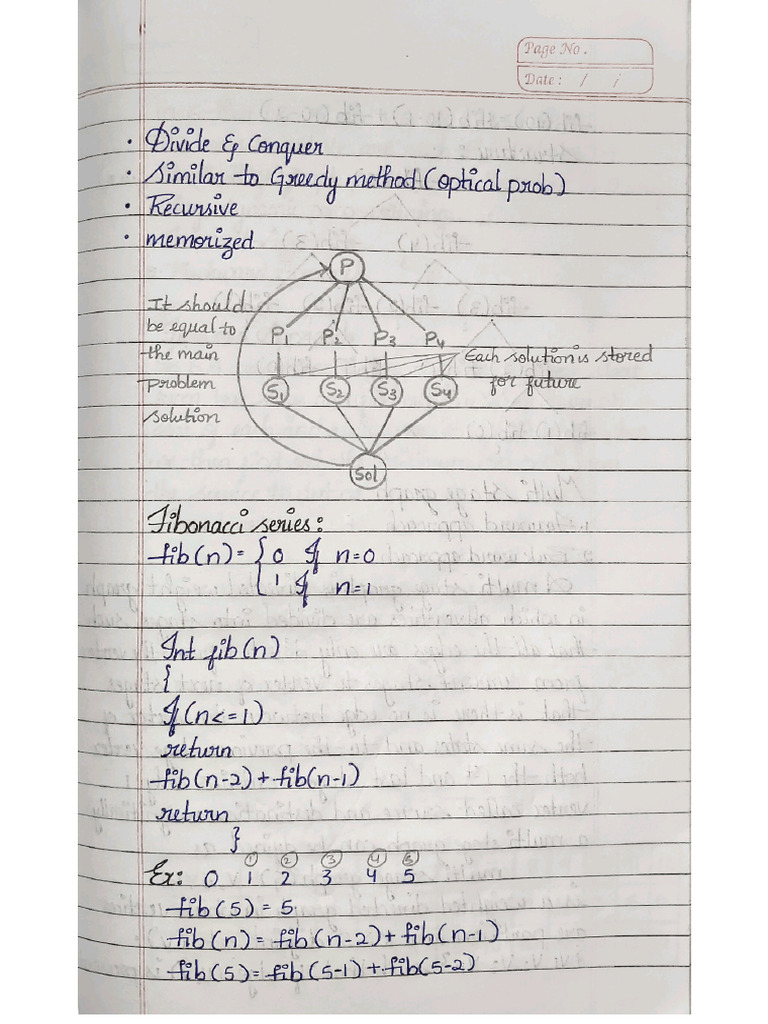 Page No.
Date: / /
• Divide & Conquer
• Similar to Greedy method (optical prob)
• Recursive
• memorized
P
It should
be equal to
the main
problem
solution
P1 P2 P3 P4
Each solution is stored
for future
S1 S2 S3 S4
Sol
Fibonacci series:
fib(n) = { 0 If n=0
{ 1 If n=1
Int fib(n)
{
If (n<=1)
return
fib(n-2) + fib(n-1)
return
}
1 2 3 4 5
Ex: 0 1 2 3 4 5
fib(5) = 5
fib(n) = fib(n-2) + fib(n-1)
fib(5) = fib(5-1) + fib(5-2)